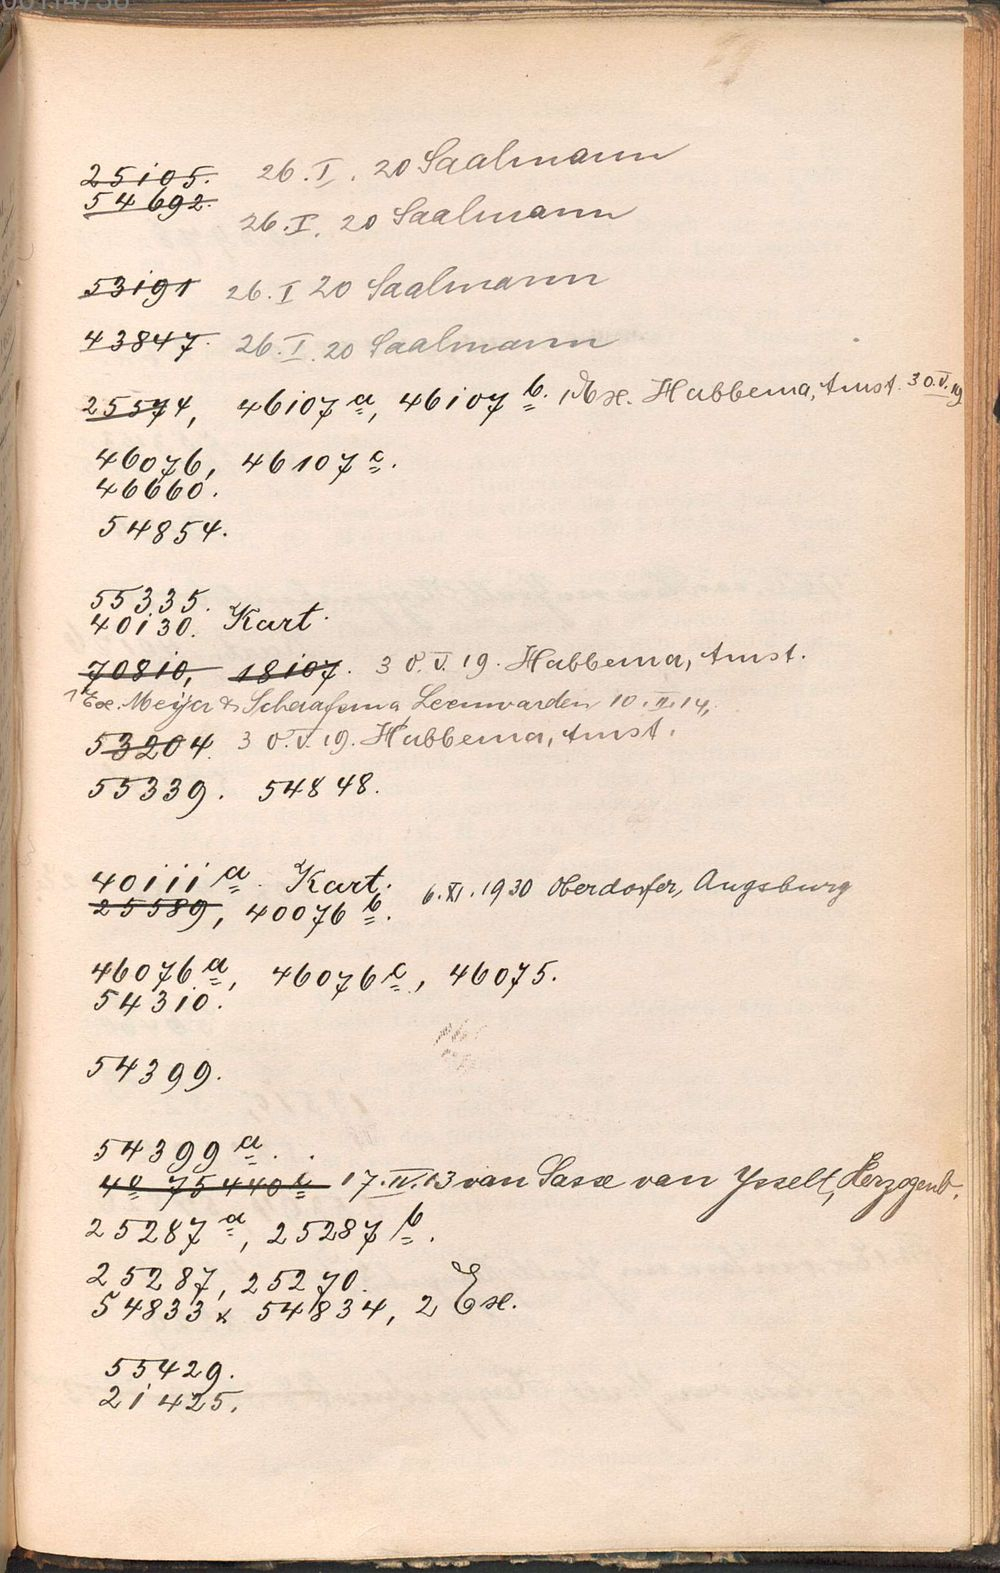 25105. 26. I. 20 Saalmann
54692. 26. I. 20 Saalmann
53191 26. I 20 Saalmann
43847. 26. I. 20 Saalmann
25574, 46107 a, 46107 b. 1 Ex. Habbema, Amst. 30.V.19
46076, 46107 c.
46660.
54854.
55335.
40130. Kart.
70810, 18107. 30.V.19. Habbema, Amst.
1 Ex. Meijer & Schaafsma Leeuwarden 10.II.14,
53204. 30.V.19. Habbema, Amst.
55339. 54848.
40111 a. Kart.
25589, 40076 b. 6.XI.1930 Oberdorfer, Augsburg
46076 a, 46076 c, 46075.
54310.
54399.
54399 a.
4o 75440 c 17.IV.13 van Sasse van Ysselt, Herzogenb.
25287 a, 25287 b.
25287, 25270.
54833 x 54834, 2 Ex.
55429.
21425.